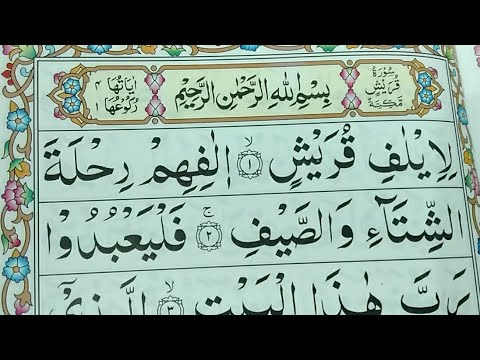 سُوْرَةُ
قُرَيْشٍ
مَكِّيَّةٌ
بِسْمِ اللّٰهِ الرَّحْمٰنِ الرَّحِيْمِ
اٰيَاتُهَا ٤
رُكُوْعُهَا ١
لِاِيْلٰفِ قُرَيْشٍ ۙ﴿١﴾ اٖلٰفِهِمْ رِحْلَةَ
الشِّتَآءِ وَالصَّيْفِ ۚ﴿٢﴾ فَلْيَعْبُدُوْا
رَبَّ هٰذَا الْبَيْتِ ۙ﴿٣﴾ الَّذِيْٓ